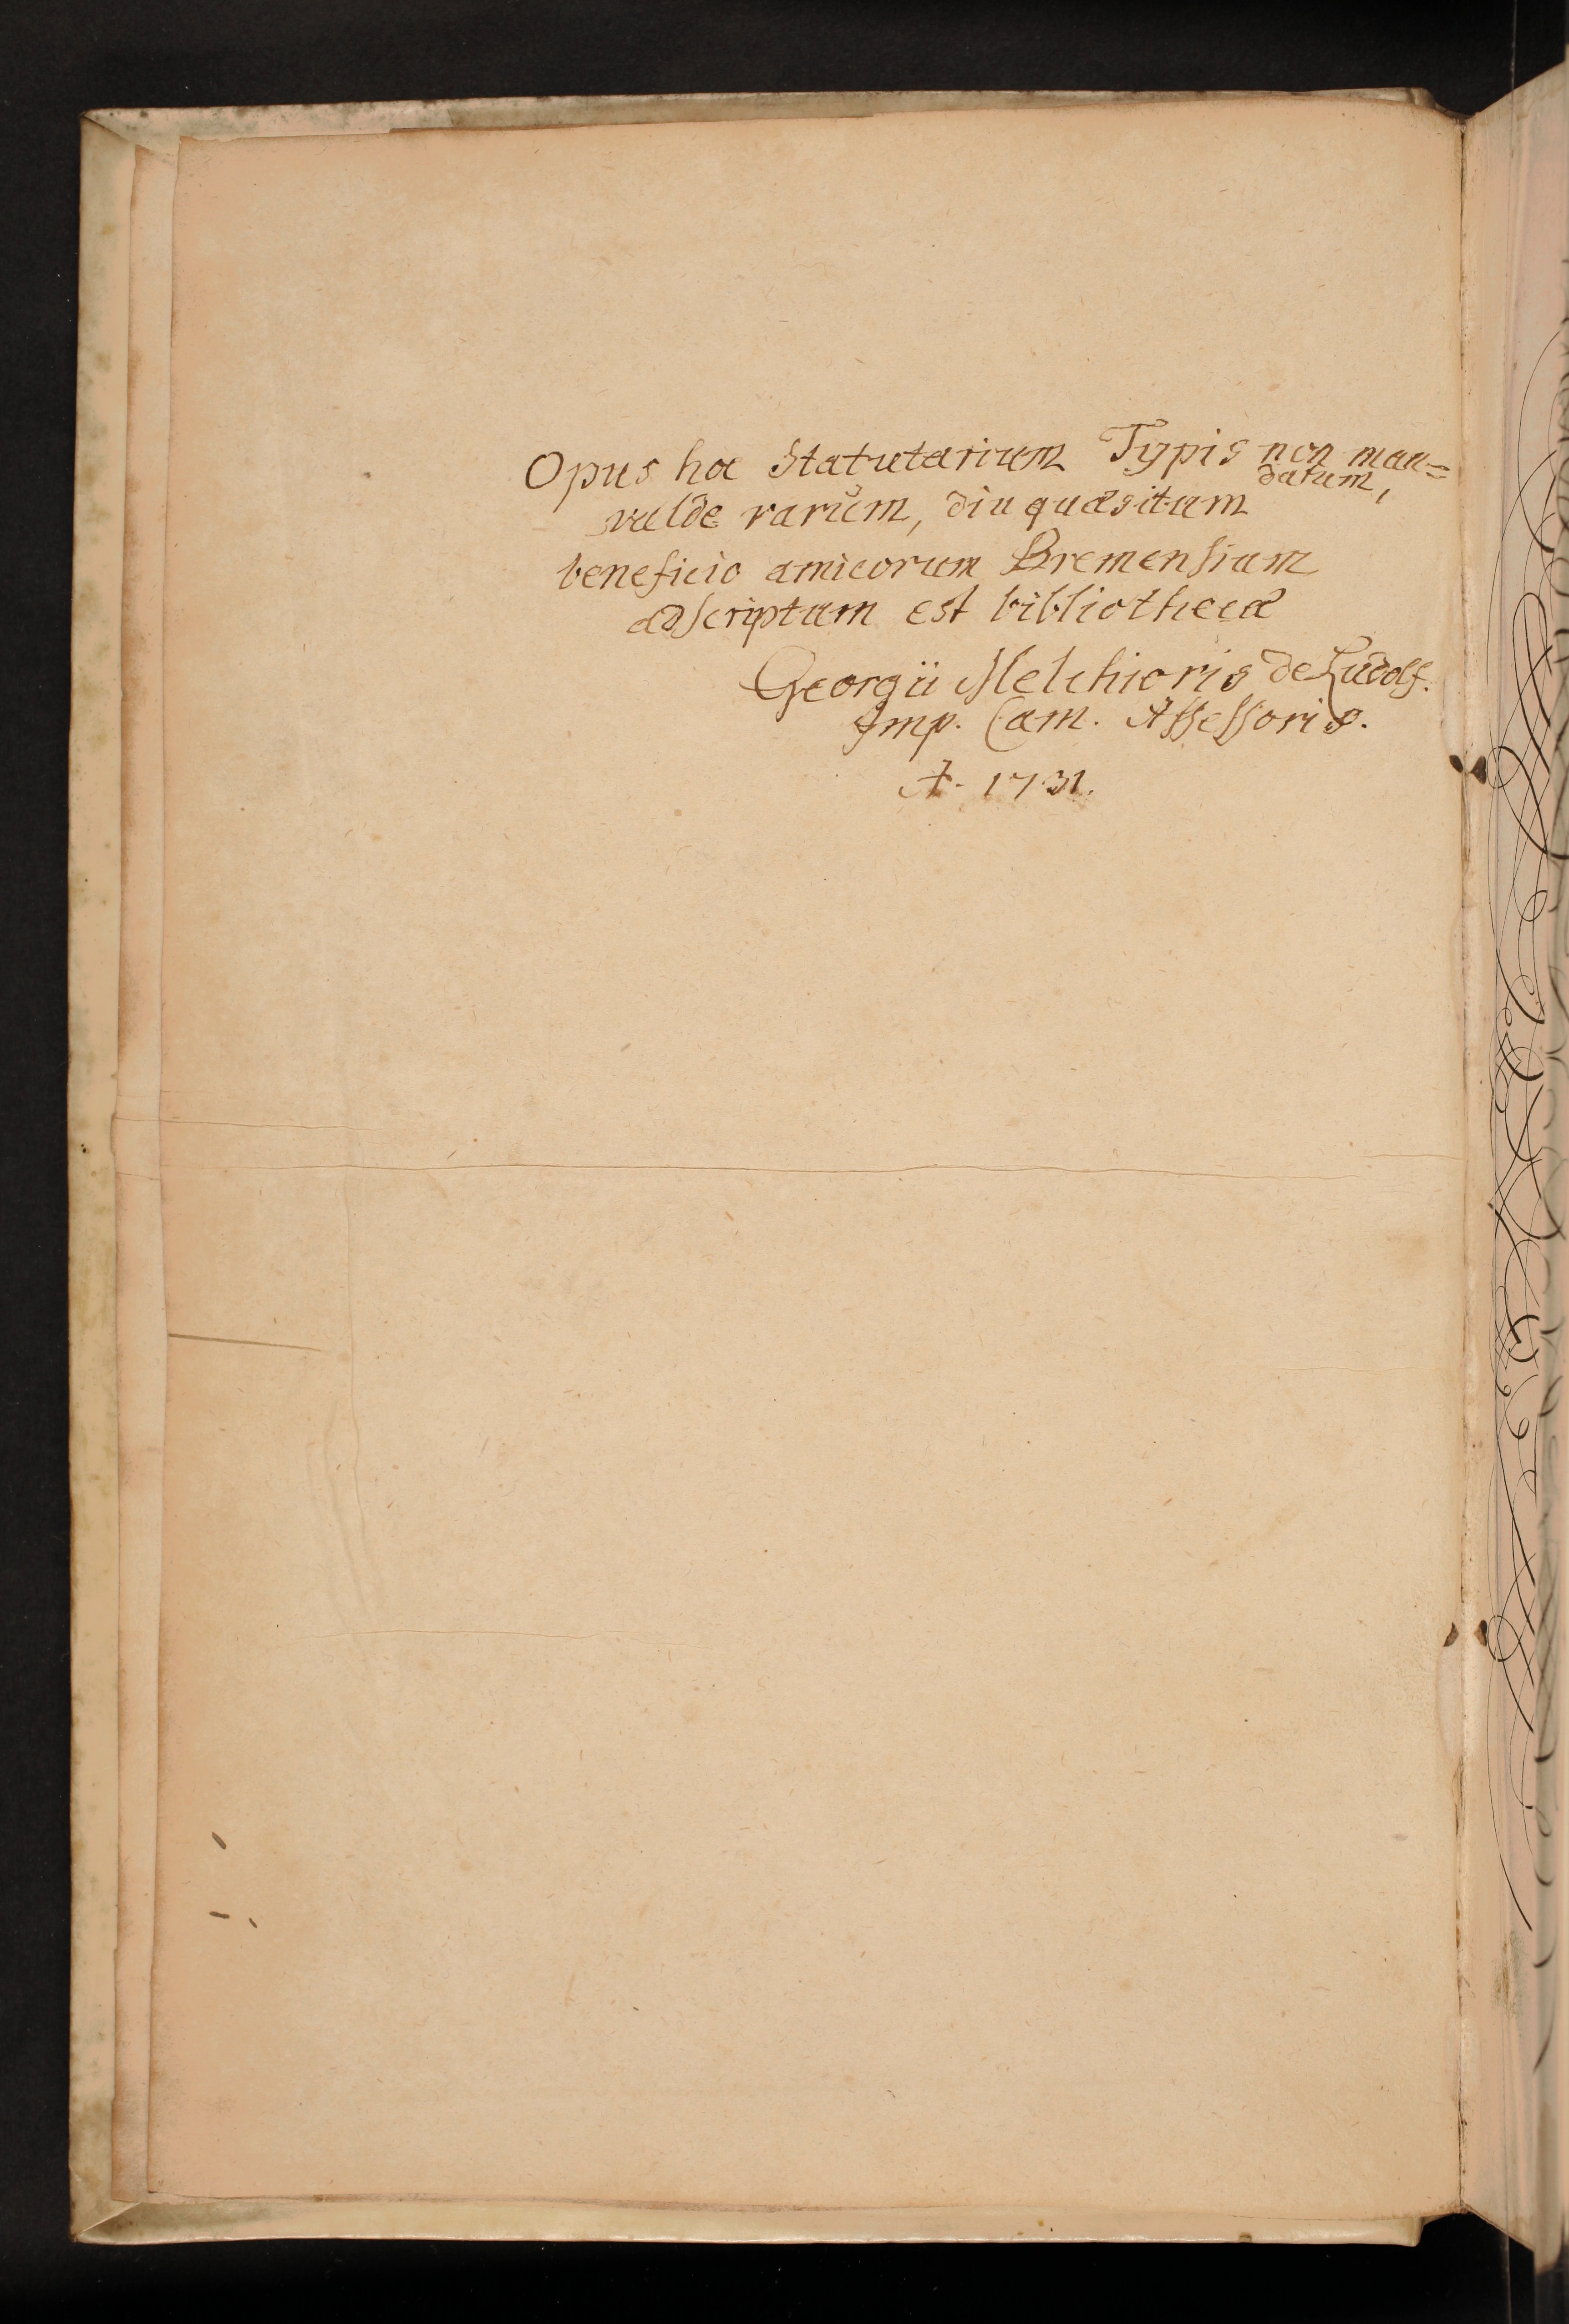 Opus hoc Statutarium Typis non man=
datum,
valde rarum, diu quæsitum
beneficio amicorum Bremensium
adscriptum est bibliothecæ
Georgii Melchioris de Ludolf.
Imp. Cam. Assessoris.
A. 1731.